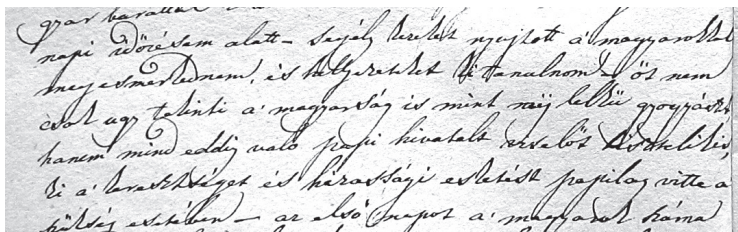 gyar baráttal
napi időzésem alatt – segély kezeket nyujtott a' magyarokkal
megesmerkednem, és helyzeteket ki tanulnom – őt nem
csak ugy tekinti a' magyarság is mint nagy lelkü gyogyászt
hanem mind eddig való papi hivatalt viselőt tisztelik is,
ki a' keresztséget és házassági esketést papilag vitte a
szükség esetében – az első napot a' magyarok száma